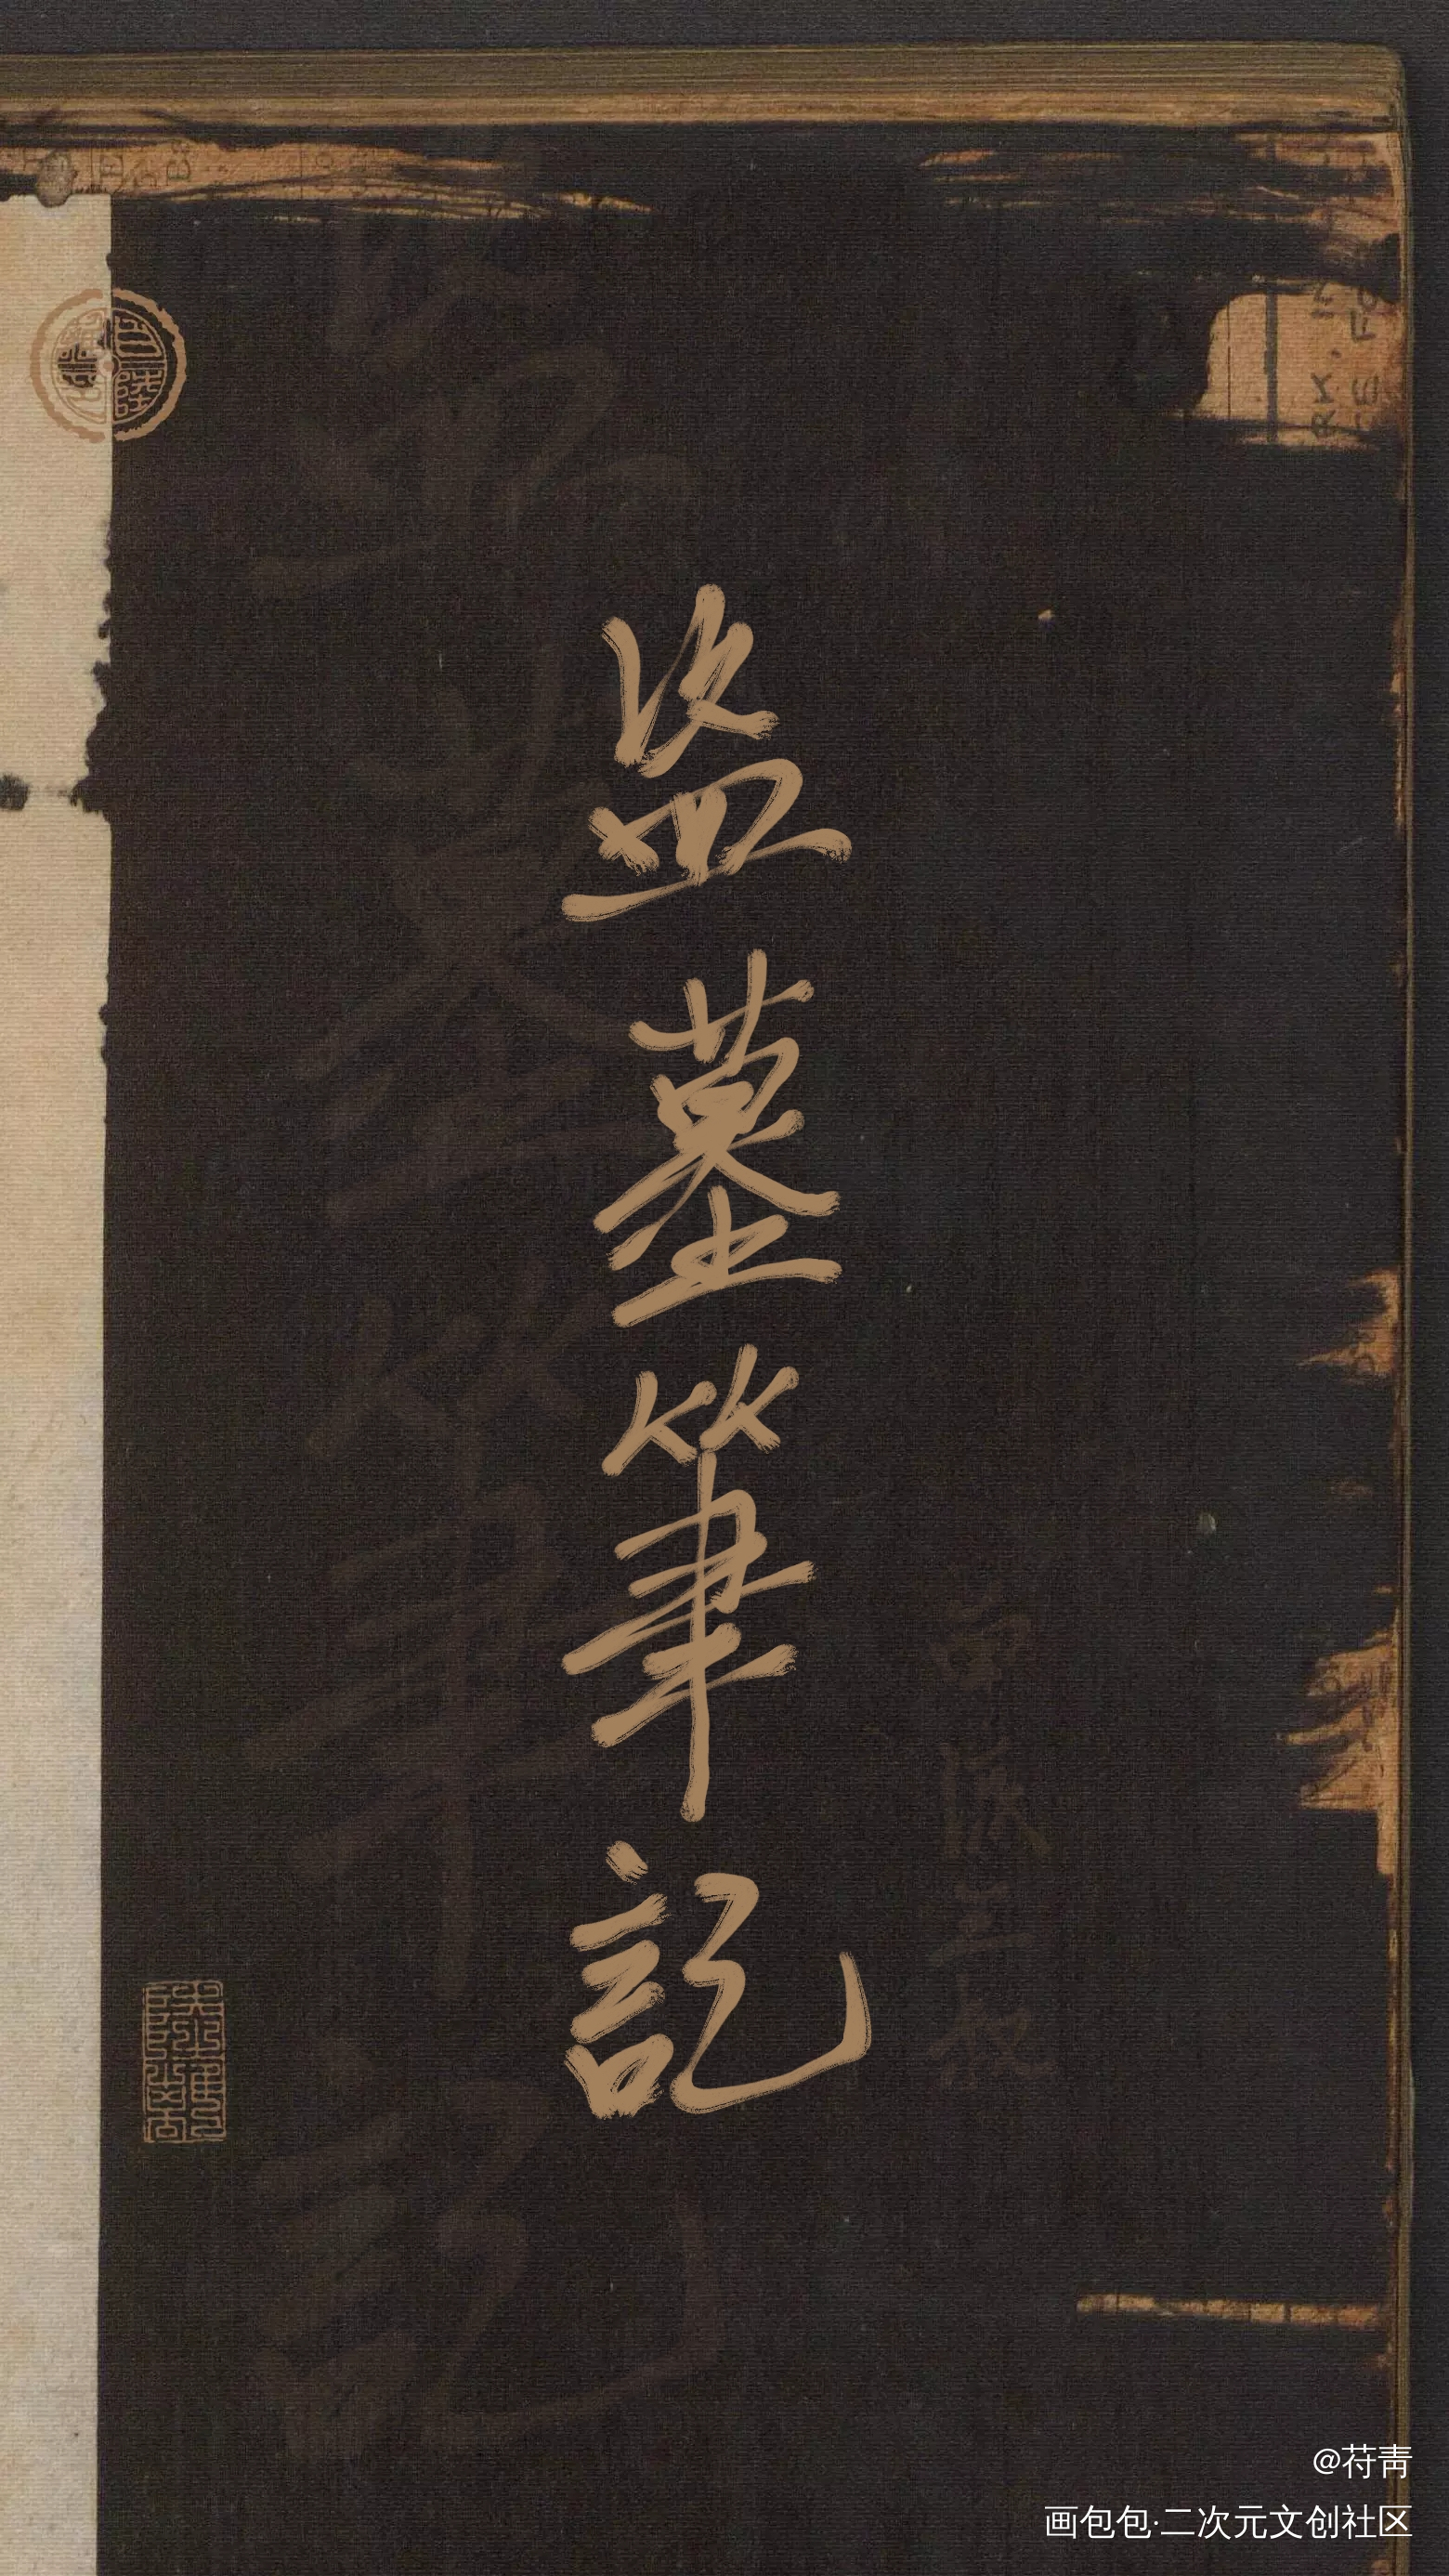 盗墓筆記
@苻靑
画包包·二次元文创社区